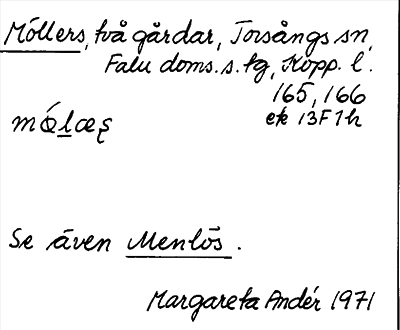 Möllers, två gårdar, Torsångs sn,
Falu doms. s. tg, Kopp. l.
165, 166
ek 13F 1h
mǿlæş
Se även Menlös.
Margareta Andér 1971